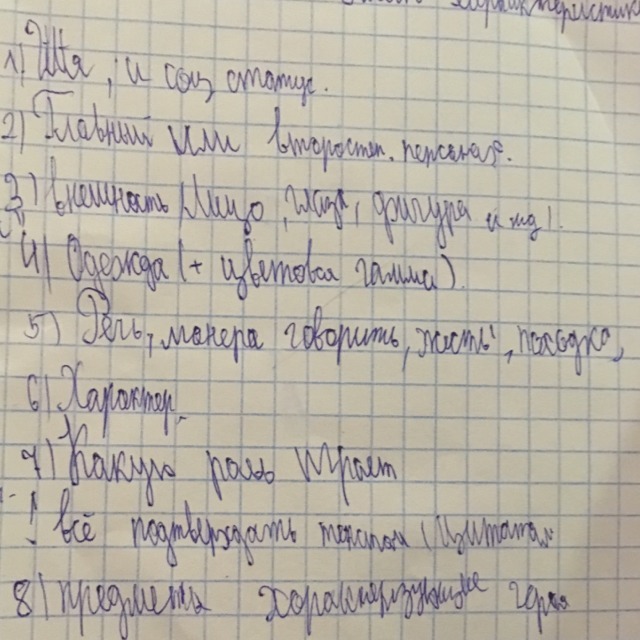 характеристики
1) Имя, и соц статус.
2) Главный или второстеп. персонаж.
3) внешность (лицо, глаза, фигура и тд).
4) Одежда (+ цветовая гамма).
5) Речь, манера говорить, жесты, походка,
6) Характер.
7) Какую роль играет
! всё подтверждать текстом (цитатами
8) предметы характеризующие героя